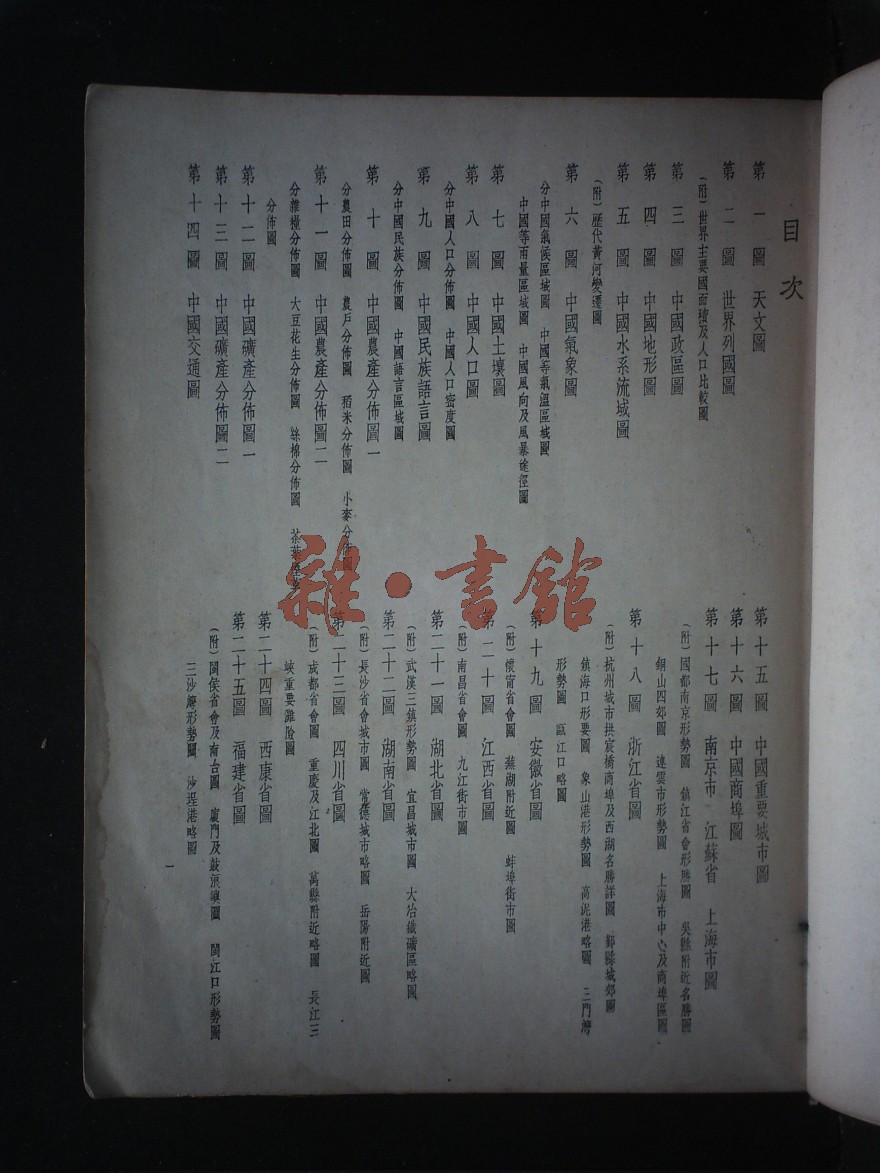 目次
第一圖 天文圖
第二圖 世界列國圖
(附)世界主要國面積及人口比較圖
第三圖 中國政區圖
第四圖 中國地形圖
第五圖 中國水系流域圖
(附)歷代黃河變遷圖
第六圖 中國氣象圖
分中國氣候區域圖 中國等氣溫區域圖
中國等雨量區域圖 中國風向及風暴途徑圖
第七圖 中國土壤圖
第八圖 中國人口圖
分中國人口分佈圖 中國人口密度圖
第九圖 中國民族語言圖
分中國民族分佈圖 中國語言區域圖
第十圖 中國農產分佈圖一
分農田分佈圖 農戶分佈圖 稻米分佈圖 小麥分佈圖
第十一圖 中國農產分佈圖二
分雜糧分佈圖 大豆花生分佈圖 絲棉分佈圖 茶葉
分佈圖
第十二圖 中國礦產分佈圖一
第十三圖 中國礦產分佈圖二
第十四圖 中國交通圖
第十五圖 中國重要城市圖
第十六圖 中國商埠圖
第十七圖 南京市 江蘇省 上海市圖
(附)國都南京形勢圖 鎮江省會形勝圖 吳縣附近名勝圖
銅山四郊圖 連雲市形勢圖 上海市中心及商埠區圖
第十八圖 浙江省圖
(附)杭州城市拱宸橋商埠及西湖名勝詳圖 鄞縣城郊圖
鎮海口形要圖 象山港形勢圖 高泥港略圖 三門灣
形勢圖 甌江口略圖
第十九圖 安徽省圖
(附)懷甯省會圖 蕪湖附近圖 蚌埠街市圖
第二十圖 江西省圖
(附)南昌省會圖 九江街市圖
第二十一圖 湖北省圖
(附)武漢三鎮形勢圖 宜昌城市圖 大冶鐵礦區略圖
第二十二圖 湖南省圖
(附)長沙省會城市圖 常德城市略圖 岳陽附近圖
第二十三圖 四川省圖
(附)成都省會圖 重慶及江北圖 萬縣附近略圖 長江三
峽重要灘險圖
第二十四圖 西康省圖
第二十五圖 福建省圖
(附)閩侯省會及南台圖 廈門及鼓浪嶼圖 閩江口形勢圖
三沙灣形勢圖 沙埕港略圖
一
雜·書館